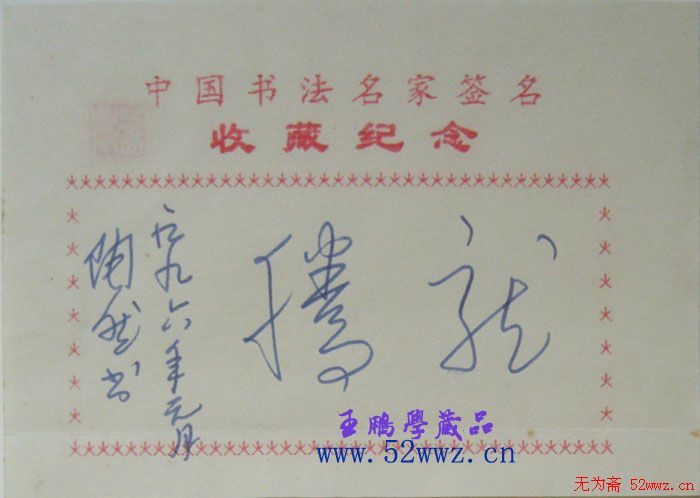 中国书法名家签名
收藏纪念
龙腾
九六年元月
陶然书
王鹏學藏品
www.52wwz.cn
无为斋 52wwz.cn